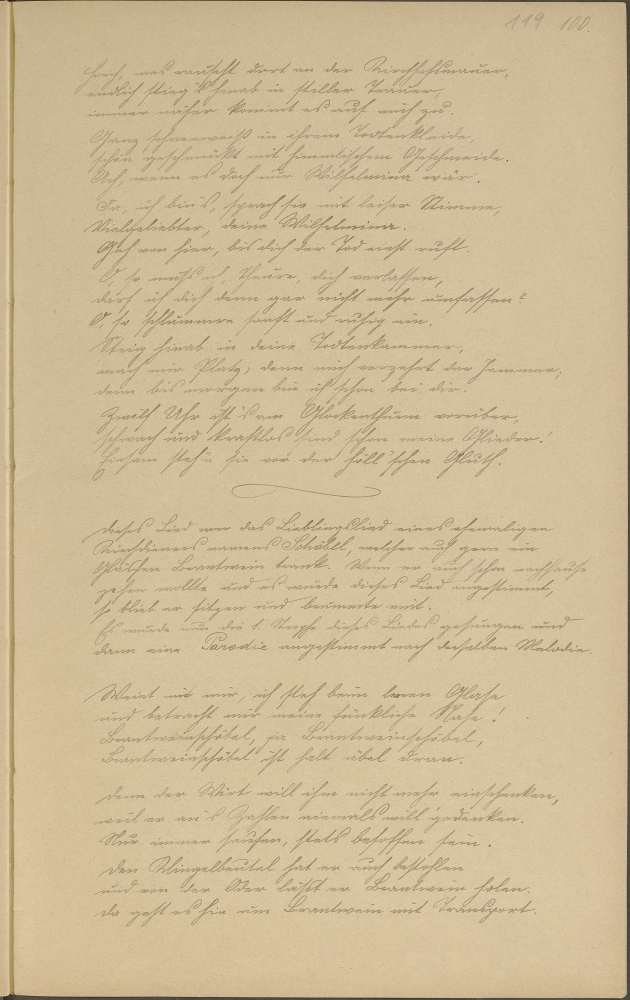 119 100.
Horch, was rauscht dort an der Kirchhofsmauer,
endlich stieg's herab in stiller Trauer,
immer näher kommt es auf mich zu.
Ganz schneeweiß in ihrem Todtenkleide,
schön geschmückt mit himmlischem Geschmeide.
Ach, wenn es doch nur Wilhelmina wär.
Ja, ich bin's, sprach sie mit leiser Stimme,
Vielgeliebter, deine Wilhelmina.
Geh von hier, bis dich der Tod nicht ruft.
O, so muß ich, Theure, dich verlassen,
darf ich dich denn gar nicht mehr umfassen?
O, so schlummre sanft und ruhig ein.
Steig hinab in deine Todtenkammer,
mach mir Platz, denn mich verzehrt der Jammer,
denn bis morgen bin ich schon bei dir.
Zwölf Uhr ist's am Glockenthurm vorüber,
schwach und kraftlos sind schon meine Glieder!
Einsam steh'n sie vor der Höll'schen Gluth.
Dieses Lied war das Lieblingslied eines ehemaligen
Kirchdieners namens Schöbel, welcher auch gern ein
Gläschen Brantwein trank. Wenn er auch schon nachhause
gehen wollte und es wurde dieses Lied angestimmt,
so blieb er sitzen und brummte mit.
Es wurde nun die 1. Strophe dieses Liedes gesungen und
dann eine Parodie angestimmt nach derselben Melodie.
Weint mit mir, ich steh beim leeren Glase
und betracht mir meine Nase!
Brantweinschöbel, ja Brantweinschöbel,
Brantweinschöbel ist halt übel dran.
Denn der Wirt will ihm nicht mehr einschenken,
weil er an's Zahlen niemals will gedenken.
Nur immer saufen, stets besoffen sein.
Den Klingelbeutel hat er auch bestohlen
und von der Oder läßt er Brantwein holen.
Da geht es hin um Brantwein mit Transport.